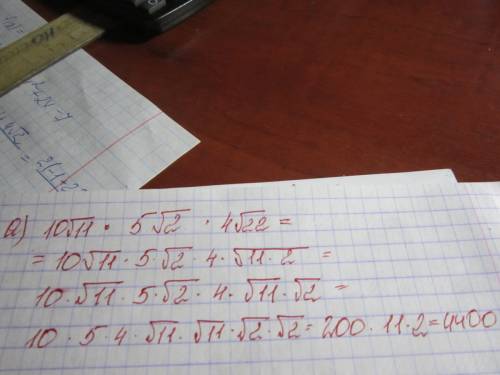 а) 10√11 · 5√2 · 4√22 =
= 10√11 · 5√2 · 4 · √11 · 2 =
10 · √11 · 5 · √2 · 4 · √11 · √2 =
10 · 5 · 4 · √11 · √11 · √2 · √2 = 200 · 11 · 2 = 4400